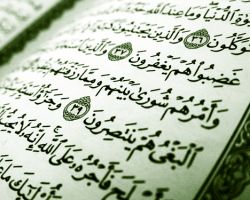 ٱلدُّنْيَا وَمَا عِندَ ٱللَّهِ
كَّلُونَ ٣٦ وَٱلَّذِينَ يَجْتَنِبُونَ
غَضِبُوا۟ هُمْ يَغْفِرُونَ ٣٧ وَٱلَّذِينَ
وَأَمْرُهُمْ شُورَىٰ بَيْنَهُمْ وَمِمَّا رَزَقْنَٰهُمْ
ٱلْبَغْىُ هُمْ يَنتَصِرُونَ ٣٩ وَجَزَٰٓؤُا۟
لَحَ فَأَجْرُهُۥ عَلَى ٱللَّهِ إِنَّهُۥ لَا يُحِبُّ
أُو۟لَٰٓئِكَ مَا